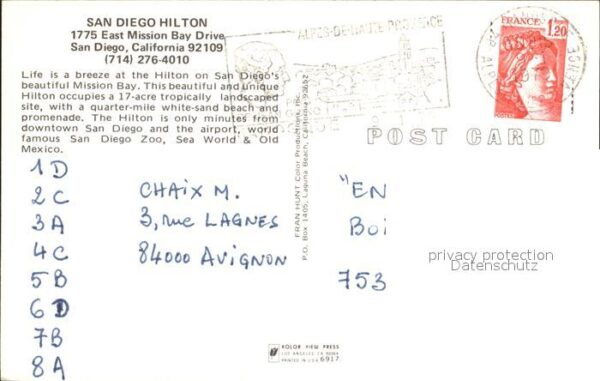 SAN DIEGO HILTON
1775 East Mission Bay Drive
San Diego, California 92109
(714) 276-4010
Life is a breeze at the Hilton on San Diego's
beautiful Mission Bay. This beautiful and unique
Hilton occupies a 17-acre tropically landscaped
site, with a quarter-mile white-sand beach and
promenade. The Hilton is only minutes from
downtown San Diego and the airport, world
famous San Diego Zoo, Sea World & Old
Mexico.
ALPES-DE-HAUTE PROVENCE
FRANCE
1,20
POSTES
POST CARD
FRAN HUNT Color Productions, Inc.
P.O. Box 1405, Laguna Beach, California 92652
1D
2C
3A
4C
5B
6D
7B
8A
CHAIX M.
3, rue LAGNES
84000 AVIGNON
"EN
Boi
753
privacy protection
Datenschutz
KOLOR VIEW PRESS
LOS ANGELES CA 90064
PRINTED IN U.S.A. 6917